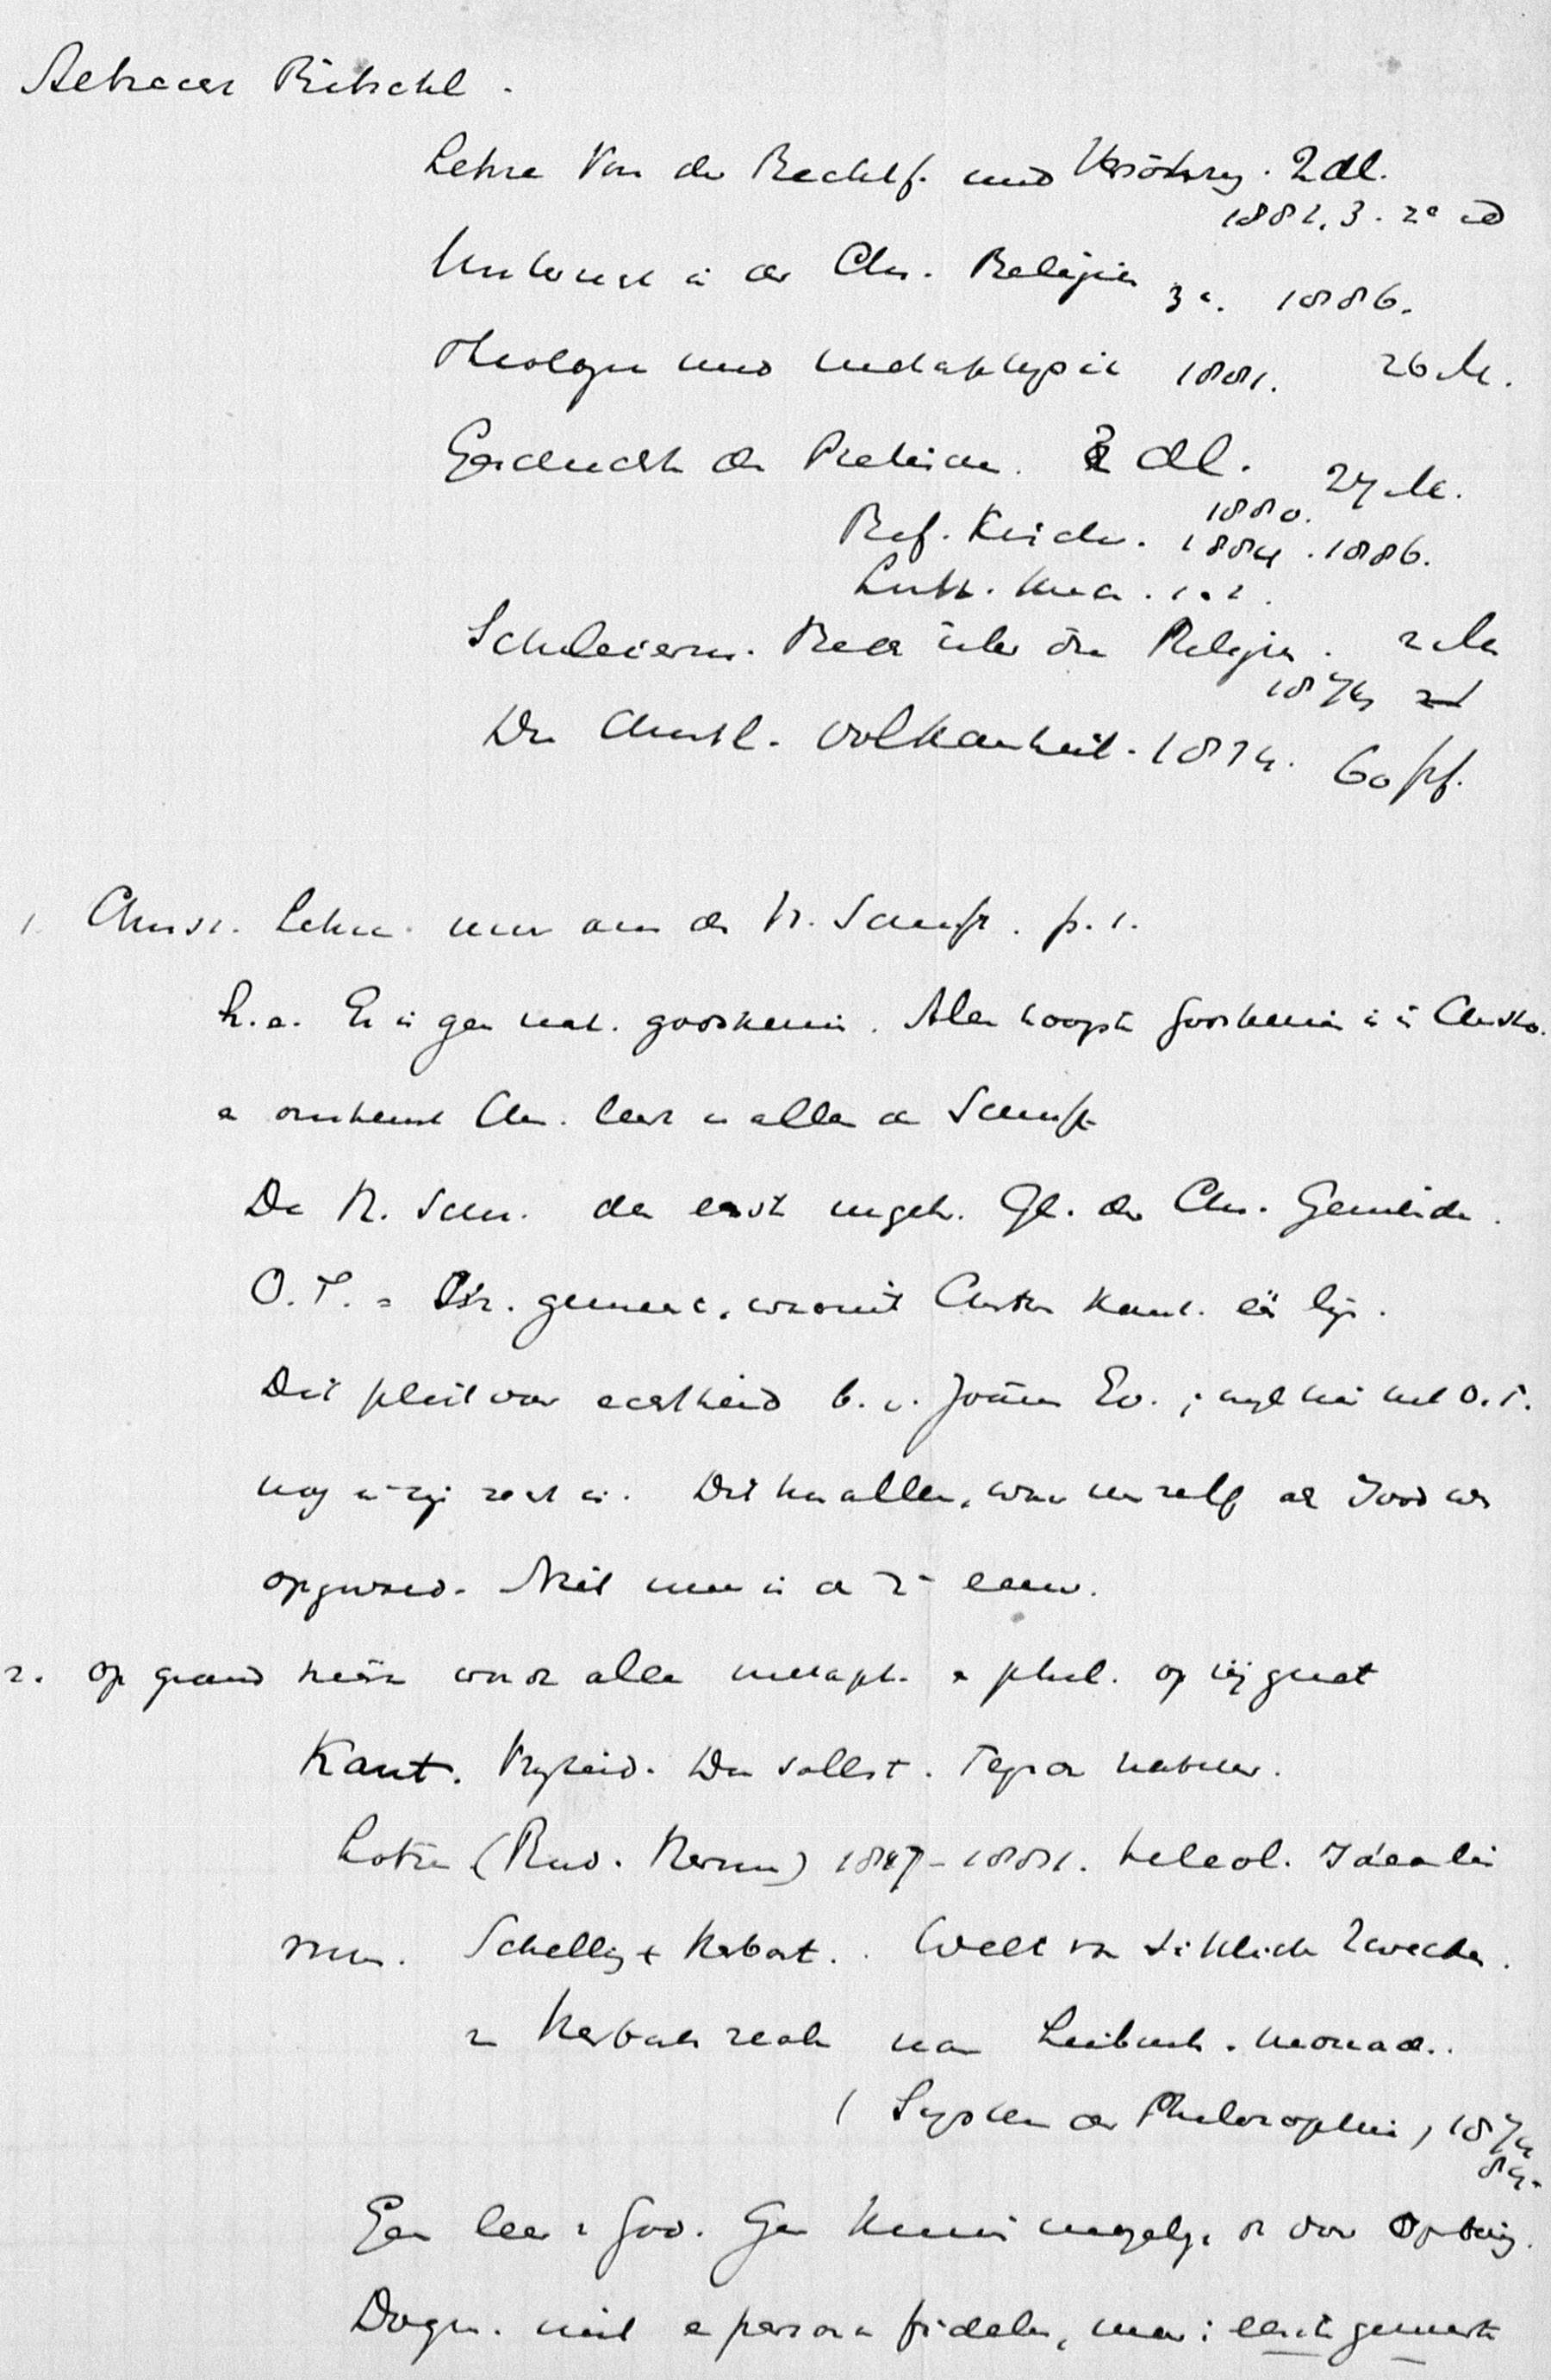 Albrecht Ritschl.
Lehre von der Rechtf. und Versöhng. 2 dl.
1882, 3. 2e ed
Unterricht in der Chr. Religion 3e. 1886.
Theologie und Metaphysik 1881. 26 M.
Geschichte des Pietismus. 3 dl. 27 M.
1880.
Ref. Kirche. 1884. 1886.
Luth. Kirche. 1. 2.
Schleierm. Reden über die Religion. 2 M
1874
Die Christl. Vollkommenheit. 1874. 60 pf.
1. Christ. Lehre nur aus der H. Schrift. p. 1.
h.e. Er is geen nat. godskennis. Alle hoogste godskennis is in Christo.
en omtrent Chr. leert ons alleen de Schrift
De H. Schr. de eerste Gl. der Chr. Gemeinde.
O.T. = Isr. gemeente, waarmit Christus kwam.
Dit pleit voor echtheid b.v. Joannes Ev.; wijl hij het O.T.
nog in zijn zent is. Dit kon alleen, wie zelf als Jood was
opgevoed. Niet meer in de 2e eeuw.
2. Op grond hiervan wordt alle metaph. en phil. op zij gezet
Kant. Vrijheid. Du sollst. Tegen de natuur.
Lotze (Rud. Herm) 1817-1881. teleol. Idealis
mus. Schelling + Herbart. Welt von sittlichen Zwecken.
en Herbarts realen naar Leibnitz. monaden.
(System der Philosophie) 1874
84.
Geen leer v God. Geen kennis mogelijk dan door Openbaring.
Dogm. niet e persona fidelis, maar: eerste gemeente